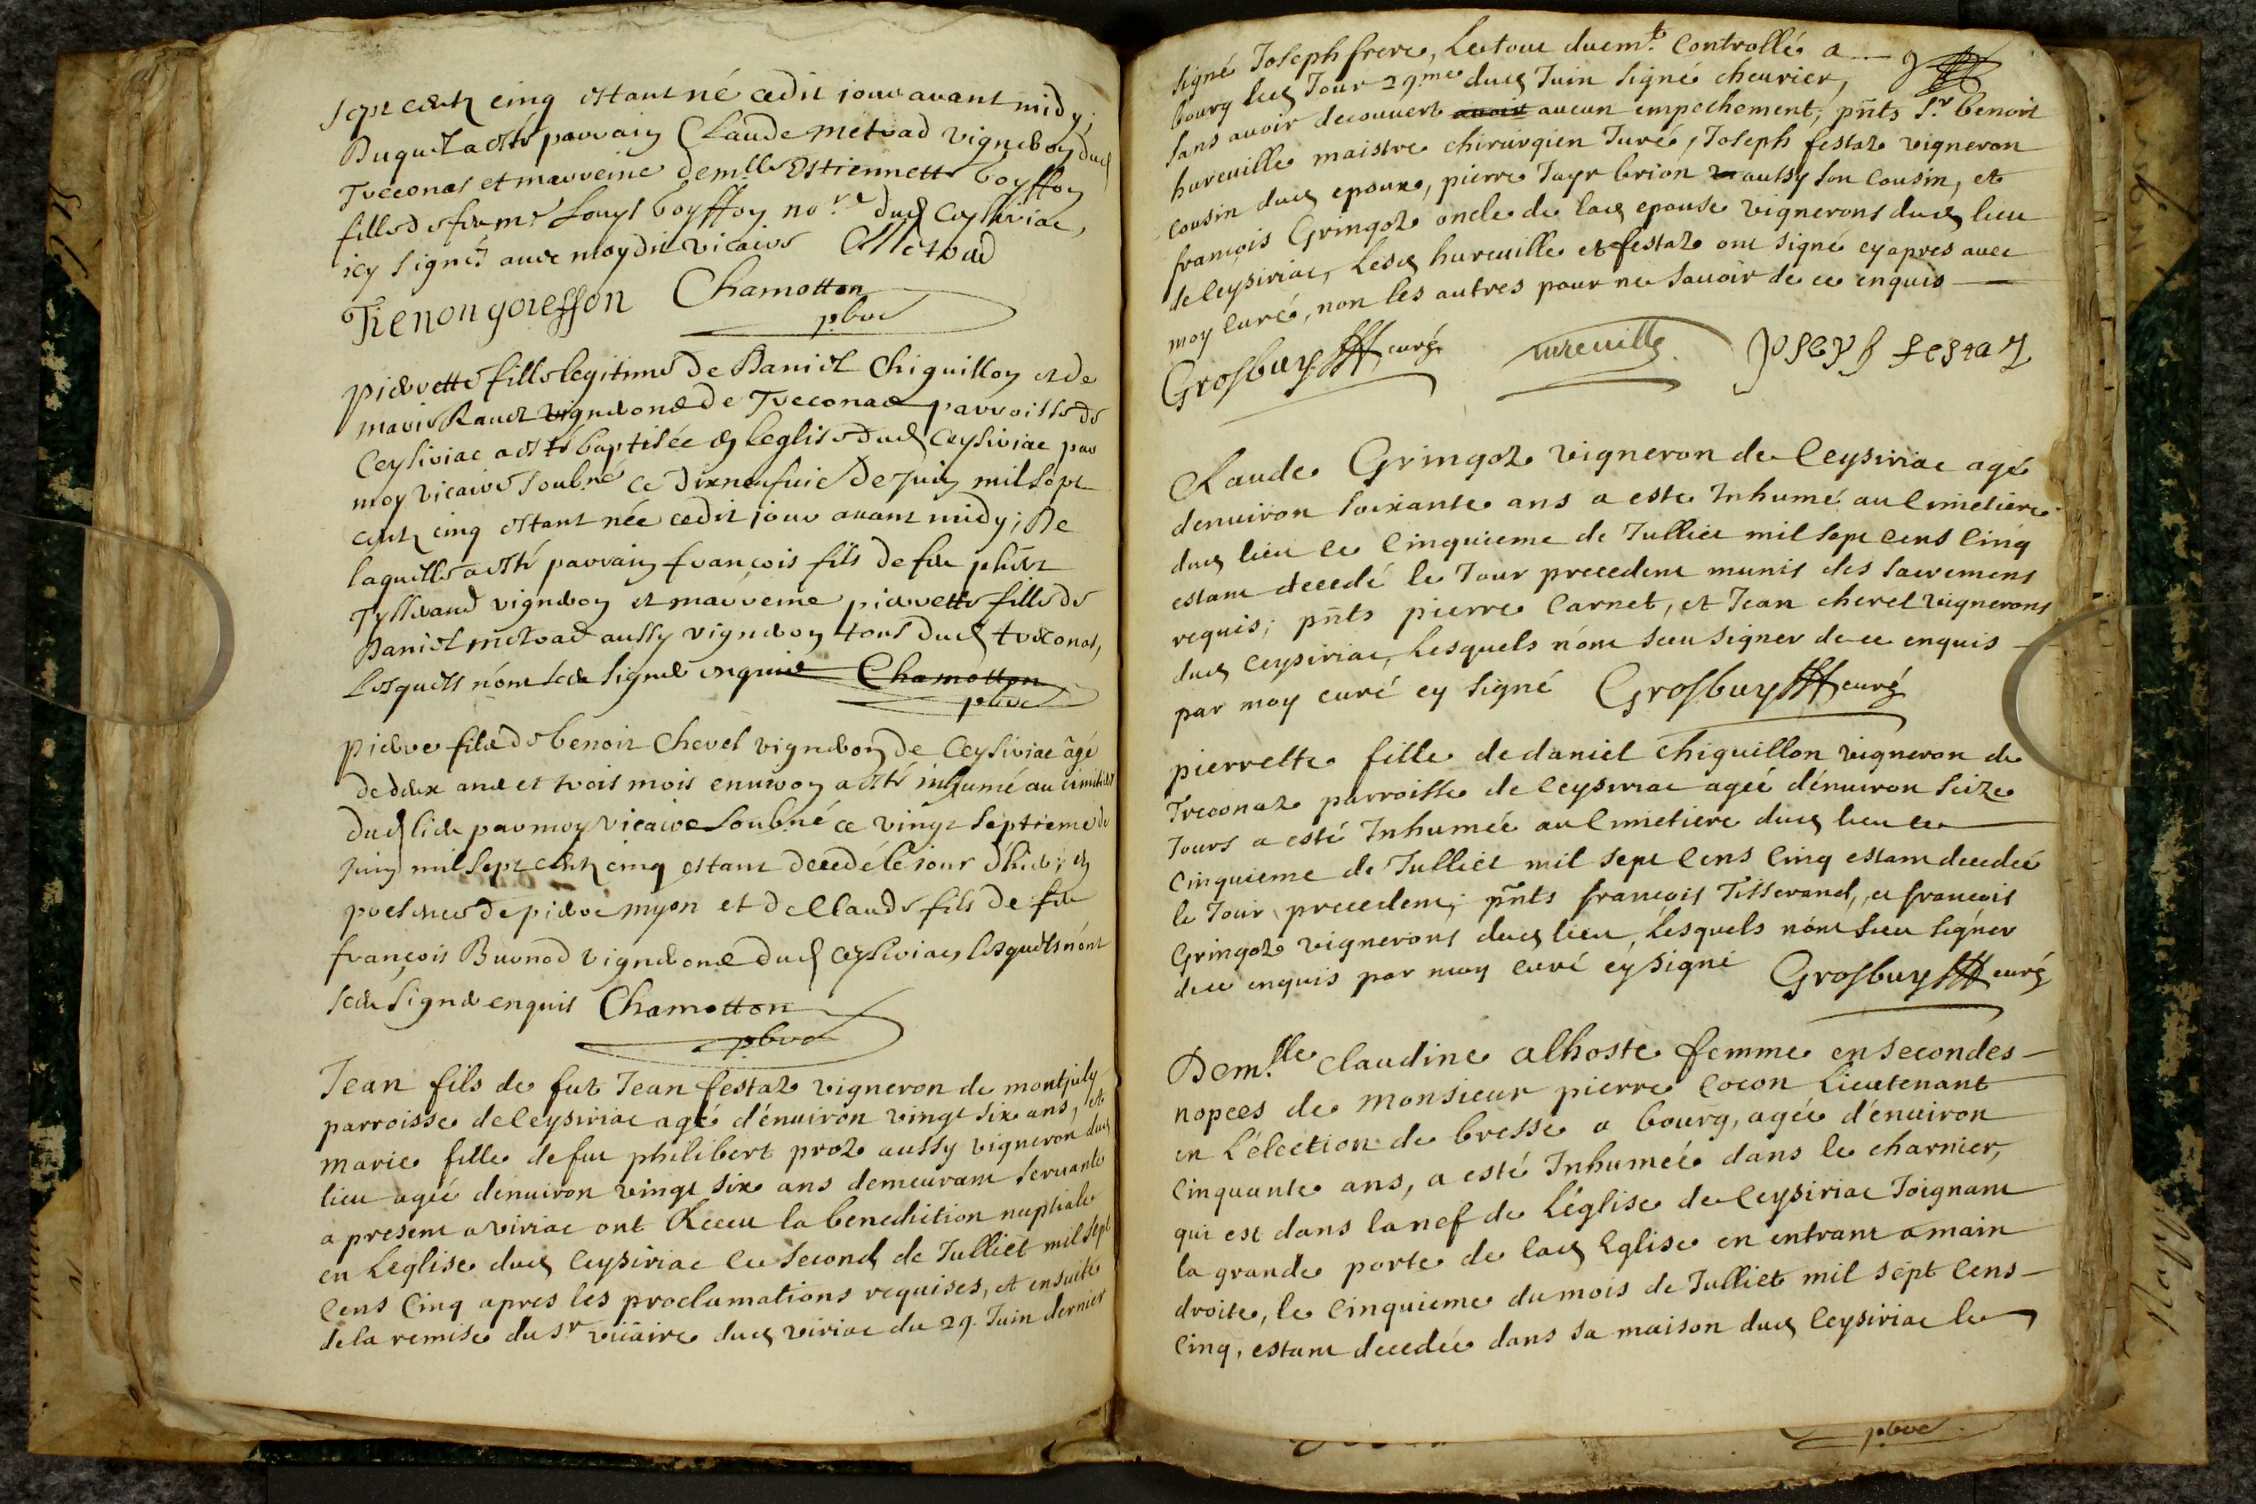 sept cents cinq estant né cedit jour avant midy;
Duquel a esté parrain Claude metrad vigneron dud
Treconas et marreine demlle Estiennette boysson
fille de feu mr Louys boysson nore dud Ceysiriac,
icy signés avec moydit vicaire CMetrad
Tienon goiesson Chamotton
pbre
pierrette fille legitime de Daniel Chiguillon et de
marie Raud vignerons de Treconas parroisse de
Ceysiriac a esté baptisée en leglise dud Ceysiriac par
moy vicaire soubné ce dixneufvie de juin mil sept
cents cinq estant née cedit jour avant midy; De
laquelle a esté parrain françois fils de feu phibt
Tysserand vigneron et marreine pierrette fille de
Daniel metrad aussy vigneron tous dud treconas,
Lesquels n'ont sceu signer enquis Chamotton
pbre
pierre fils de benoit Chevel vigneron de Ceysiriac âgé
de deux ans et trois mois environ a esté inhumé au cimitier
dud lieu par moy vicaire soubné ce vingt septieme de
juin mil sept cents cinq estant decedé le jour d'hier; en
presences de pierre myon et de Claude fils de feu
françois Burnod vignerons dud Ceysiriac lesquels n'ont
sceu signer enquis Chamotton
pbre
Jean fils de fut Jean festaz vigneron de montjuly
parroisse de Ceysiriac agé d'énuiron vingt six ans, et
marie fille de fut philibert proz aussy vigneron dud
lieu agée denuiron vingt six ans demeurant seruante
a present a viriac ont Receu la benediction nuptiale
en Leglise dud Ceysiriac le second de Julliet mil sept
Cens Cinq apres les proclamations requises, et ensuite
de la remise du sr vicaire dud viriac du 29. Juin dernier
signé Joseph frere, Letout duemt. Controllé a
bourg led Jour 29me dud Juin signé cheurier,
sans auoir decouuert avoir aucun empechement, pñts Sr. benoit
hureuille maistre chirurgien Juré, Joseph festaz vigneron
cousin dud epoux, pierre Jayr brion aussy son cousin, et
françois Gringoz oncle de lad epouse vignerons dud lieu
de Ceysiriac, Lesd hureuille et festaz ont signé cy apres auec
moy Curé, non les autres pour ne sauoir de ce enquis
Grosbuy curé hureuille Joseph festaz
Claude Gringoz vigneron de Ceysiriac agé
denuiron soixante ans a este Inhumé au Cimetiere
dud lieu le Cinquieme de Julliet mil sept Cens Cinq
estant decedé le Jour precedent munis des sacremens
requis; pñts pierre Carnet, et Jean chevel vignerons
dud Ceysiriac, Lesquels n'ont sceu signer de ce enquis
par moy curé cy signé Grosbuy curé
pierrette fille de daniel Chiguillon vigneron de
Treconaz parroisse de Ceysiriac agéé d'énuiron seize
Jours a esté Inhuméé au Cimetiere dud lieu le
Cinquieme de Julliet mil sept Cens Cinq estant decedéé
le Jour precedent; pñts françois Tisserand, et françois
Gringoz vignerons dud lieu, Lésquels n'ont sceu signer
de ce enquis par moy curé cy signé Grosbuy curé
Dem.lle Claudine alhoste femme en secondes
nopces de Monsieur pierre Cocon Lieutenant
en L'élection de bresse a bourg, agée d'énuiron
Cinquante ans, a esté Inhuméé dans le charnier,
qui est dans la nef de L'église de Ceysiriac Joignant
la grande porte de lad Eglise en entrant a main
droite, le Cinquieme du mois de Julliet mil sept Cens
Cinq, estant decedée dans sa maison dud Ceysiriac le
pbre